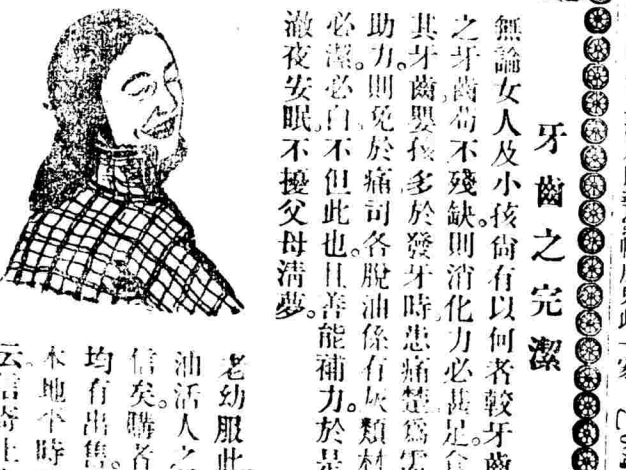 牙齒之完潔
無論女人及小孩尙有以何者較牙齒
之牙齒苟不殘缺則消化力必甚足食
其牙齒嬰孩多於發牙時患痛楚爲
助力則免於痛司各脫油係有灰類材
必潔必白不但此也且善能補力於是
澈夜安眠不擾父母淸夢
老幼服此
油活人之
信矣購者
均有出售
本地不時
云信寄上